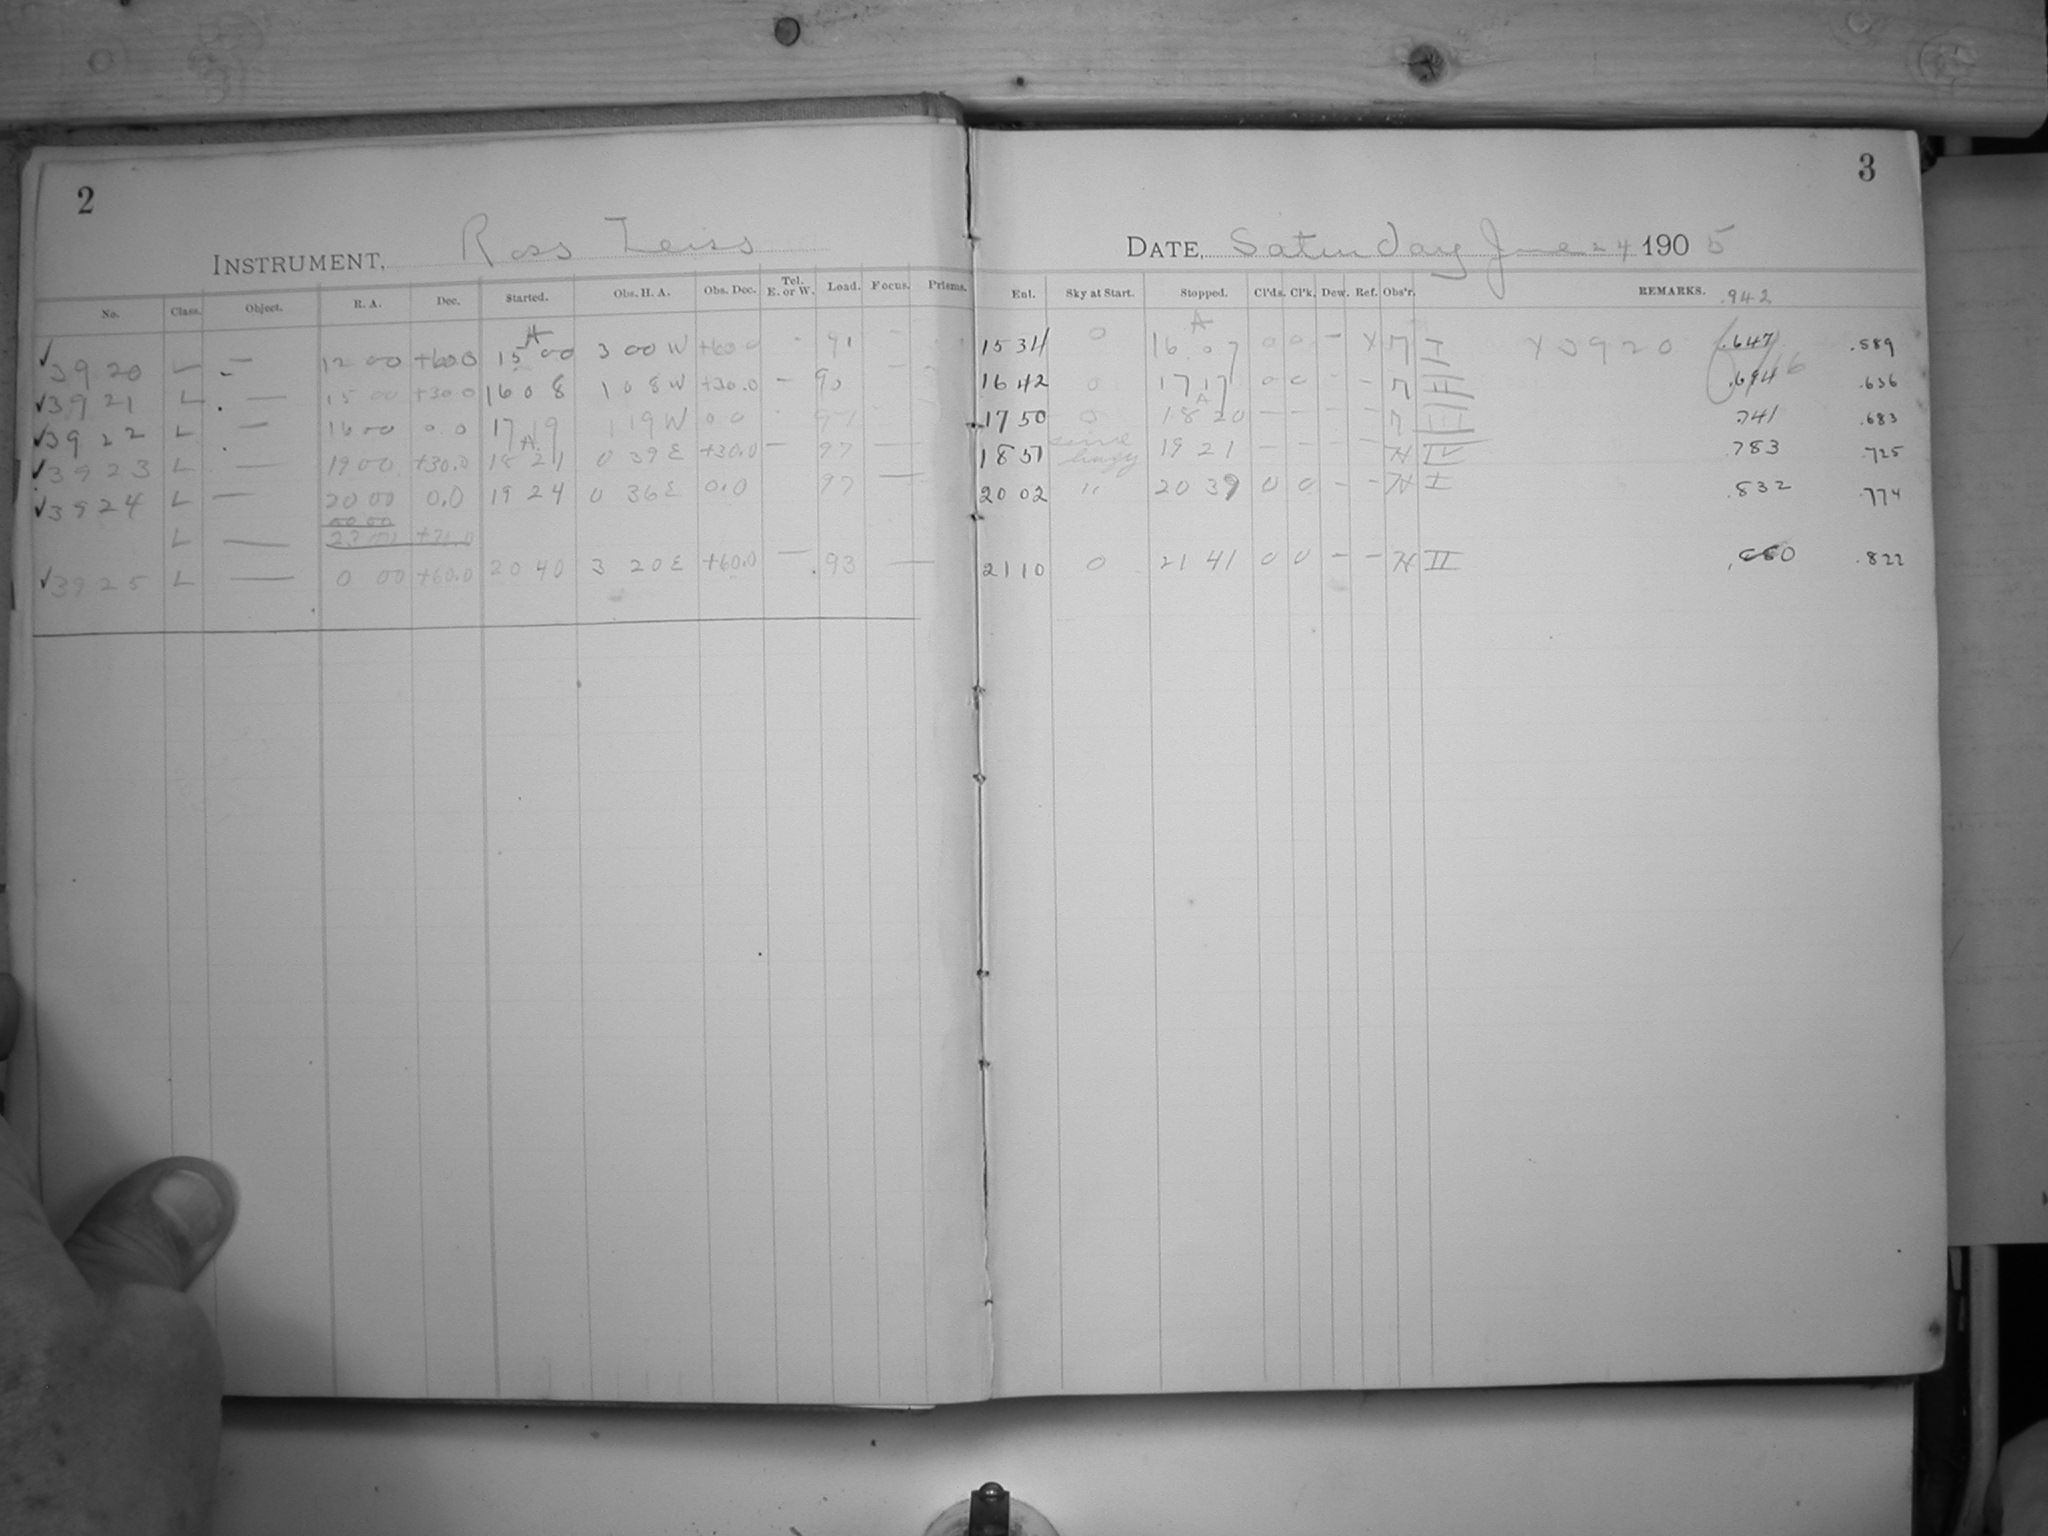 2
INSTRUMENT, Ross Zeiss
No. Class. Object. R. A. Dec. Started. Obs. H. A. Obs. Dec. Tel. E. or W. Load. Focus. Prisms.
✓3920 L — 12 00 +60.0 A 15 00 3 00 W +60.0 - 91 -
✓3921 L — 15 00 +30.0 16 08 1 08 W +30.0 - 90 -
✓3922 L — 16 00 0.0 17 19 1 19 W 0 0
✓3923 L — 19 00 +30.0 A 18 21 0 39 E +30.0 — 97 —
✓3924 L — 20 00 0.0 19 24 0 36 E 0.0 97 —
L —
✓3925 L — 0 00 +60.0 20 40 3 20 E +60.0 — 93 —
3
DATE, Saturday June 24 1905
Ent. Sky at Start. Stopped. Cl'ds. Cl'k. Dew. Ref. Obs'r. REMARKS. .942
15 34 0 A 16 07 0 0 - X M I X 3920 .647 .589
16 42 0 17 17 0 0 - - M II .694 .636
17 50 0 A 18 20 - - - - M III .741 .683
18 51 hazy 19 21 - - - - H IV .783 .725
20 02 " 20 39 0 0 - - H I .832 .774
21 10 0 21 41 0 0 - - H II .822